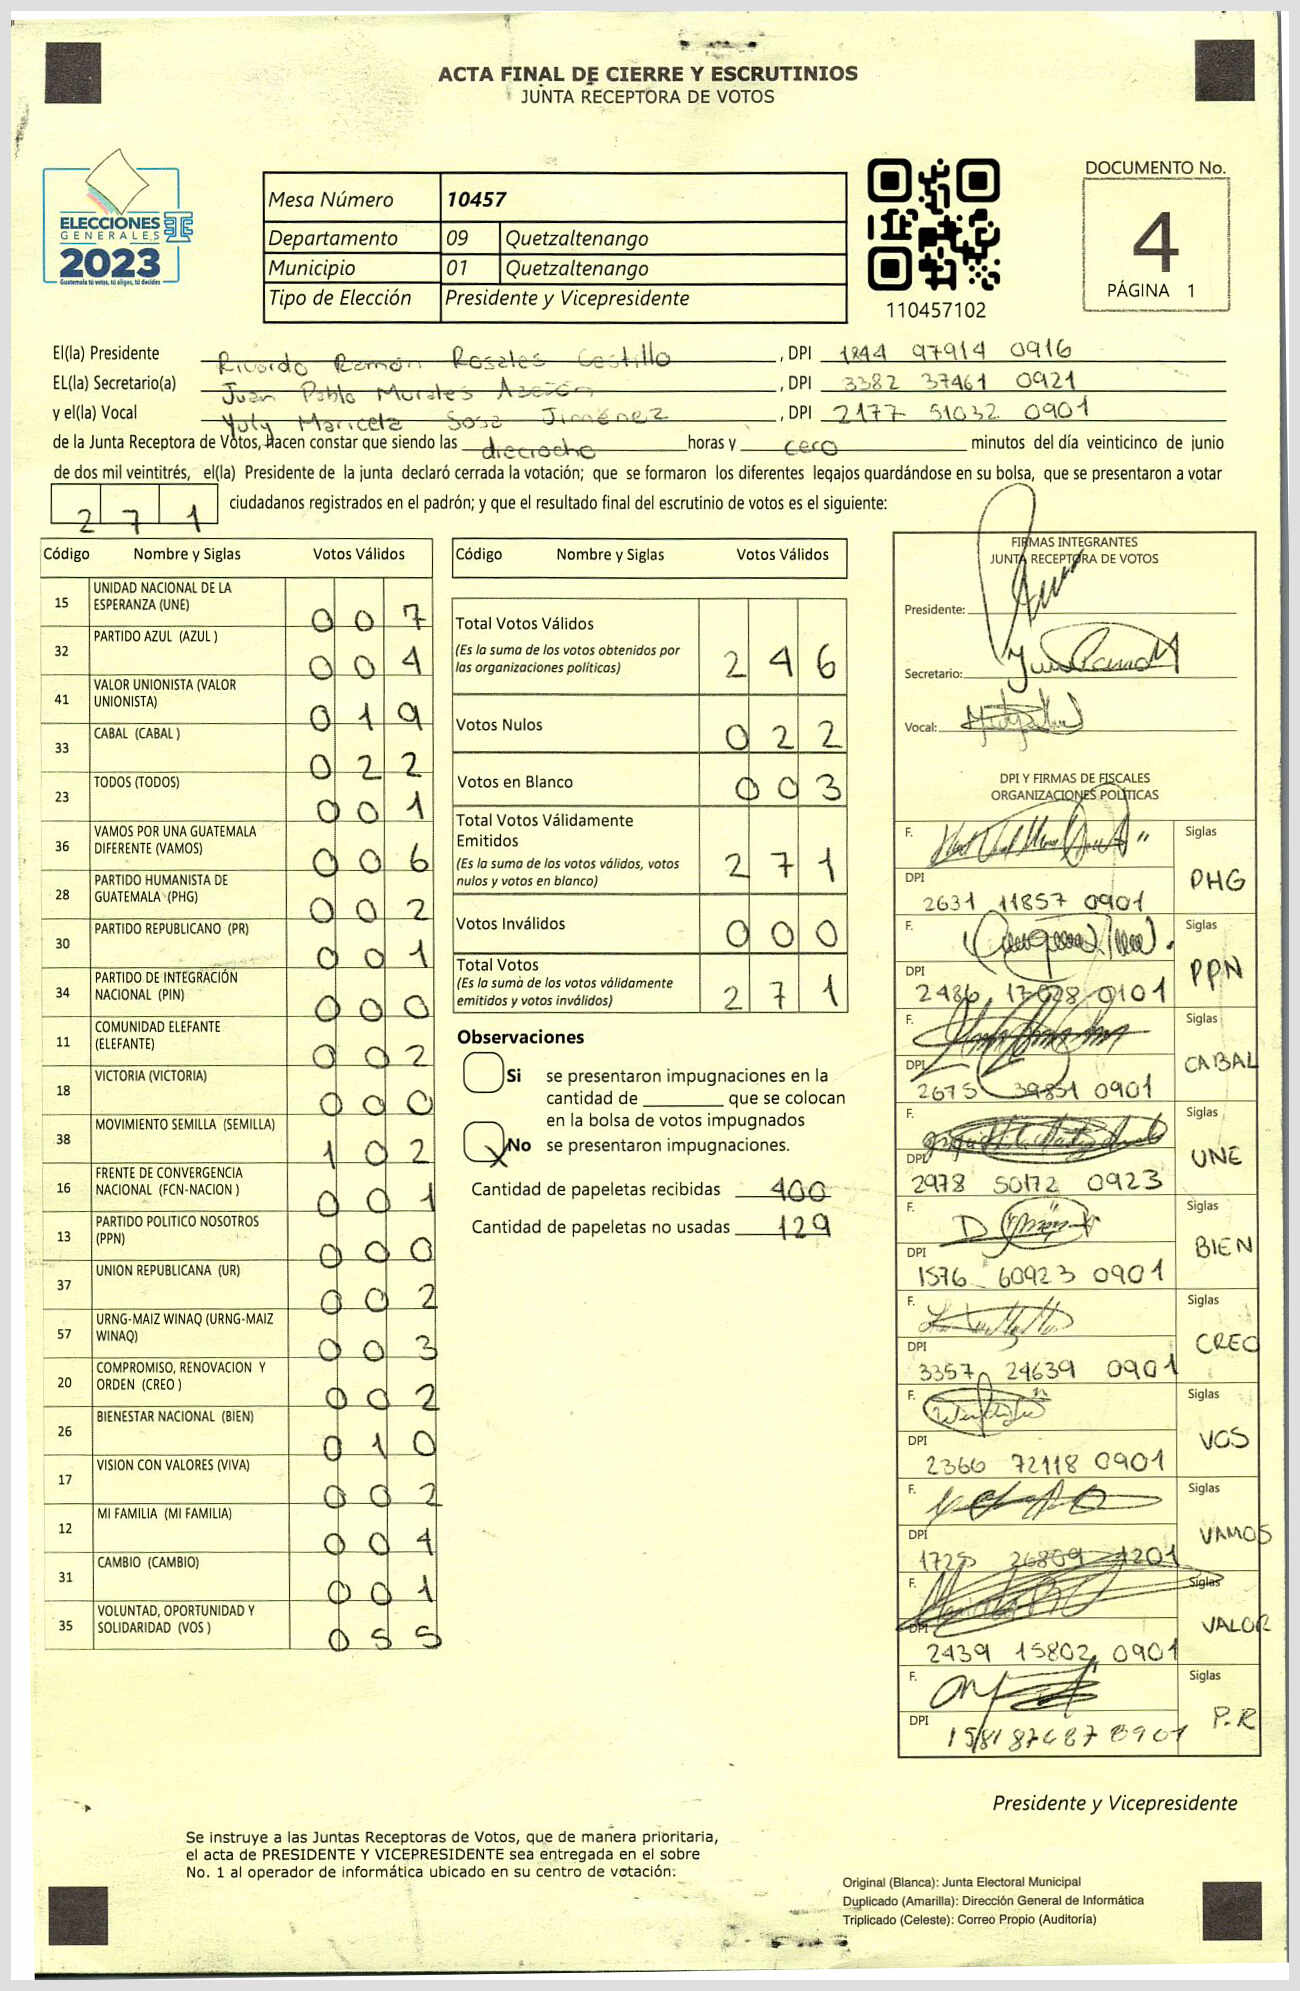 ACTA FINAL DE CIERRE Y ESCRUTINIOS
JUNTA RECEPTORA DE VOTOS
ELECCIONES
GENERALES
2023
Guatemala tú votas, tú eliges, tú decides
Mesa Número 10457
Departamento 09 Quetzaltenango
Municipio 01 Quetzaltenango
Tipo de Elección Presidente y Vicepresidente
110457102
DOCUMENTO No.
4
PÁGINA 1
El(la) Presidente Ricardo Ramón Rosales Castillo, DPI 1844 97914 0916
EL(la) Secretario(a) Juan Pablo Morales, DPI 3382 37461 0921
y el(la) Vocal Yuly Maricela Sosa Jiménez, DPI 2177 51032 0901
de la Junta Receptora de Votos, hacen constar que siendo las dieciocho horas y cero minutos del día veinticinco de junio
de dos mil veintitrés, el(la) Presidente de la junta declaró cerrada la votación; que se formaron los diferentes legajos guardándose en su bolsa, que se presentaron a votar
271 ciudadanos registrados en el padrón; y que el resultado final del escrutinio de votos es el siguiente:
Código Nombre y Siglas Votos Válidos
15 UNIDAD NACIONAL DE LA ESPERANZA (UNE) 007
32 PARTIDO AZUL (AZUL ) 004
41 VALOR UNIONISTA (VALOR UNIONISTA) 019
33 CABAL (CABAL ) 022
23 TODOS (TODOS) 001
36 VAMOS POR UNA GUATEMALA DIFERENTE (VAMOS) 006
28 PARTIDO HUMANISTA DE GUATEMALA (PHG) 002
30 PARTIDO REPUBLICANO (PR) 001
34 PARTIDO DE INTEGRACIÓN NACIONAL (PIN) 000
11 COMUNIDAD ELEFANTE (ELEFANTE) 002
18 VICTORIA (VICTORIA) 000
38 MOVIMIENTO SEMILLA (SEMILLA) 102
16 FRENTE DE CONVERGENCIA NACIONAL (FCN-NACION ) 001
13 PARTIDO POLITICO NOSOTROS (PPN) 000
37 UNION REPUBLICANA (UR) 002
57 URNG-MAIZ WINAQ (URNG-MAIZ WINAQ) 003
20 COMPROMISO, RENOVACION Y ORDEN (CREO ) 002
26 BIENESTAR NACIONAL (BIEN) 010
17 VISION CON VALORES (VIVA) 002
12 MI FAMILIA (MI FAMILIA) 004
31 CAMBIO (CAMBIO) 001
35 VOLUNTAD, OPORTUNIDAD Y SOLIDARIDAD (VOS ) 055
Código Nombre y Siglas Votos Válidos
Total Votos Válidos 246
(Es la suma de los votos obtenidos por
las organizaciones políticas)
Votos Nulos 022
Votos en Blanco 003
Total Votos Válidamente
Emitidos 271
(Es la suma de los votos válidos, votos
nulos y votos en blanco)
Votos Inválidos 000
Total Votos 271
(Es la suma de los votos válidamente
emitidos y votos inválidos)
Observaciones
Si se presentaron impugnaciones en la
cantidad de ________ que se colocan
en la bolsa de votos impugnados
X No se presentaron impugnaciones.
Cantidad de papeletas recibidas 400
Cantidad de papeletas no usadas 129
FIRMAS INTEGRANTES
JUNTA RECEPTORA DE VOTOS
Presidente:
Secretario:
Vocal:
DPI Y FIRMAS DE FISCALES
ORGANIZACIONES POLÍTICAS
F. Siglas
DPI 2631 11857 0901 PHG
F. Siglas
DPI 2486 17028 0101 PPN
F. Siglas
DPI 2675 39851 0901 CABAL
F. Siglas
DPI 2978 50172 0923 UNE
F. Siglas
DPI 1576 60923 0901 BIEN
F. Siglas
DPI 3357 24639 0901 CREO
F. Siglas
DPI 2366 72118 0901 VOS
F. Siglas
DPI 1725 26809 1201 VAMOS
F. Siglas
DPI 2439 15802 0901 VALOR
F. Siglas
DPI P.R
Presidente y Vicepresidente
Se instruye a las Juntas Receptoras de Votos, que de manera prioritaria,
el acta de PRESIDENTE Y VICEPRESIDENTE sea entregada en el sobre
No. 1 al operador de informática ubicado en su centro de votación.
Original (Blanca): Junta Electoral Municipal
Duplicado (Amarilla): Dirección General de Informática
Triplicado (Celeste): Correo Propio (Auditoría)